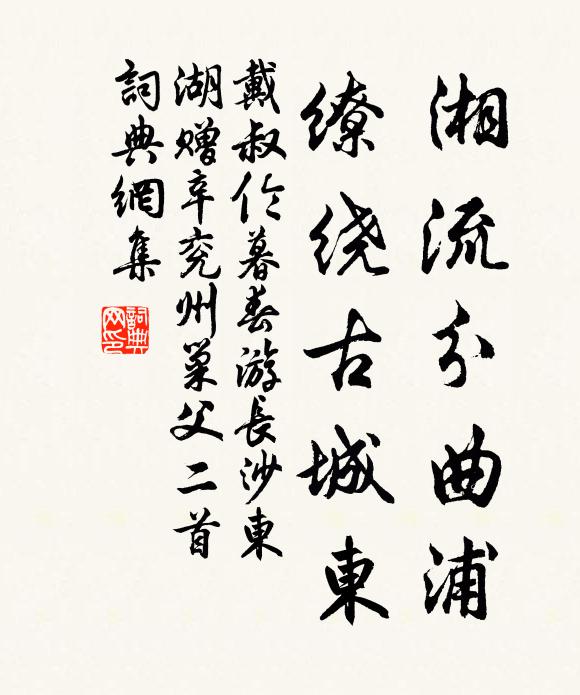 湘流分曲浦
缭绕古城東
戴叔伦暮春游長沙東
湖赠辛兖州巢父二首
詞典網集
詞典
网印